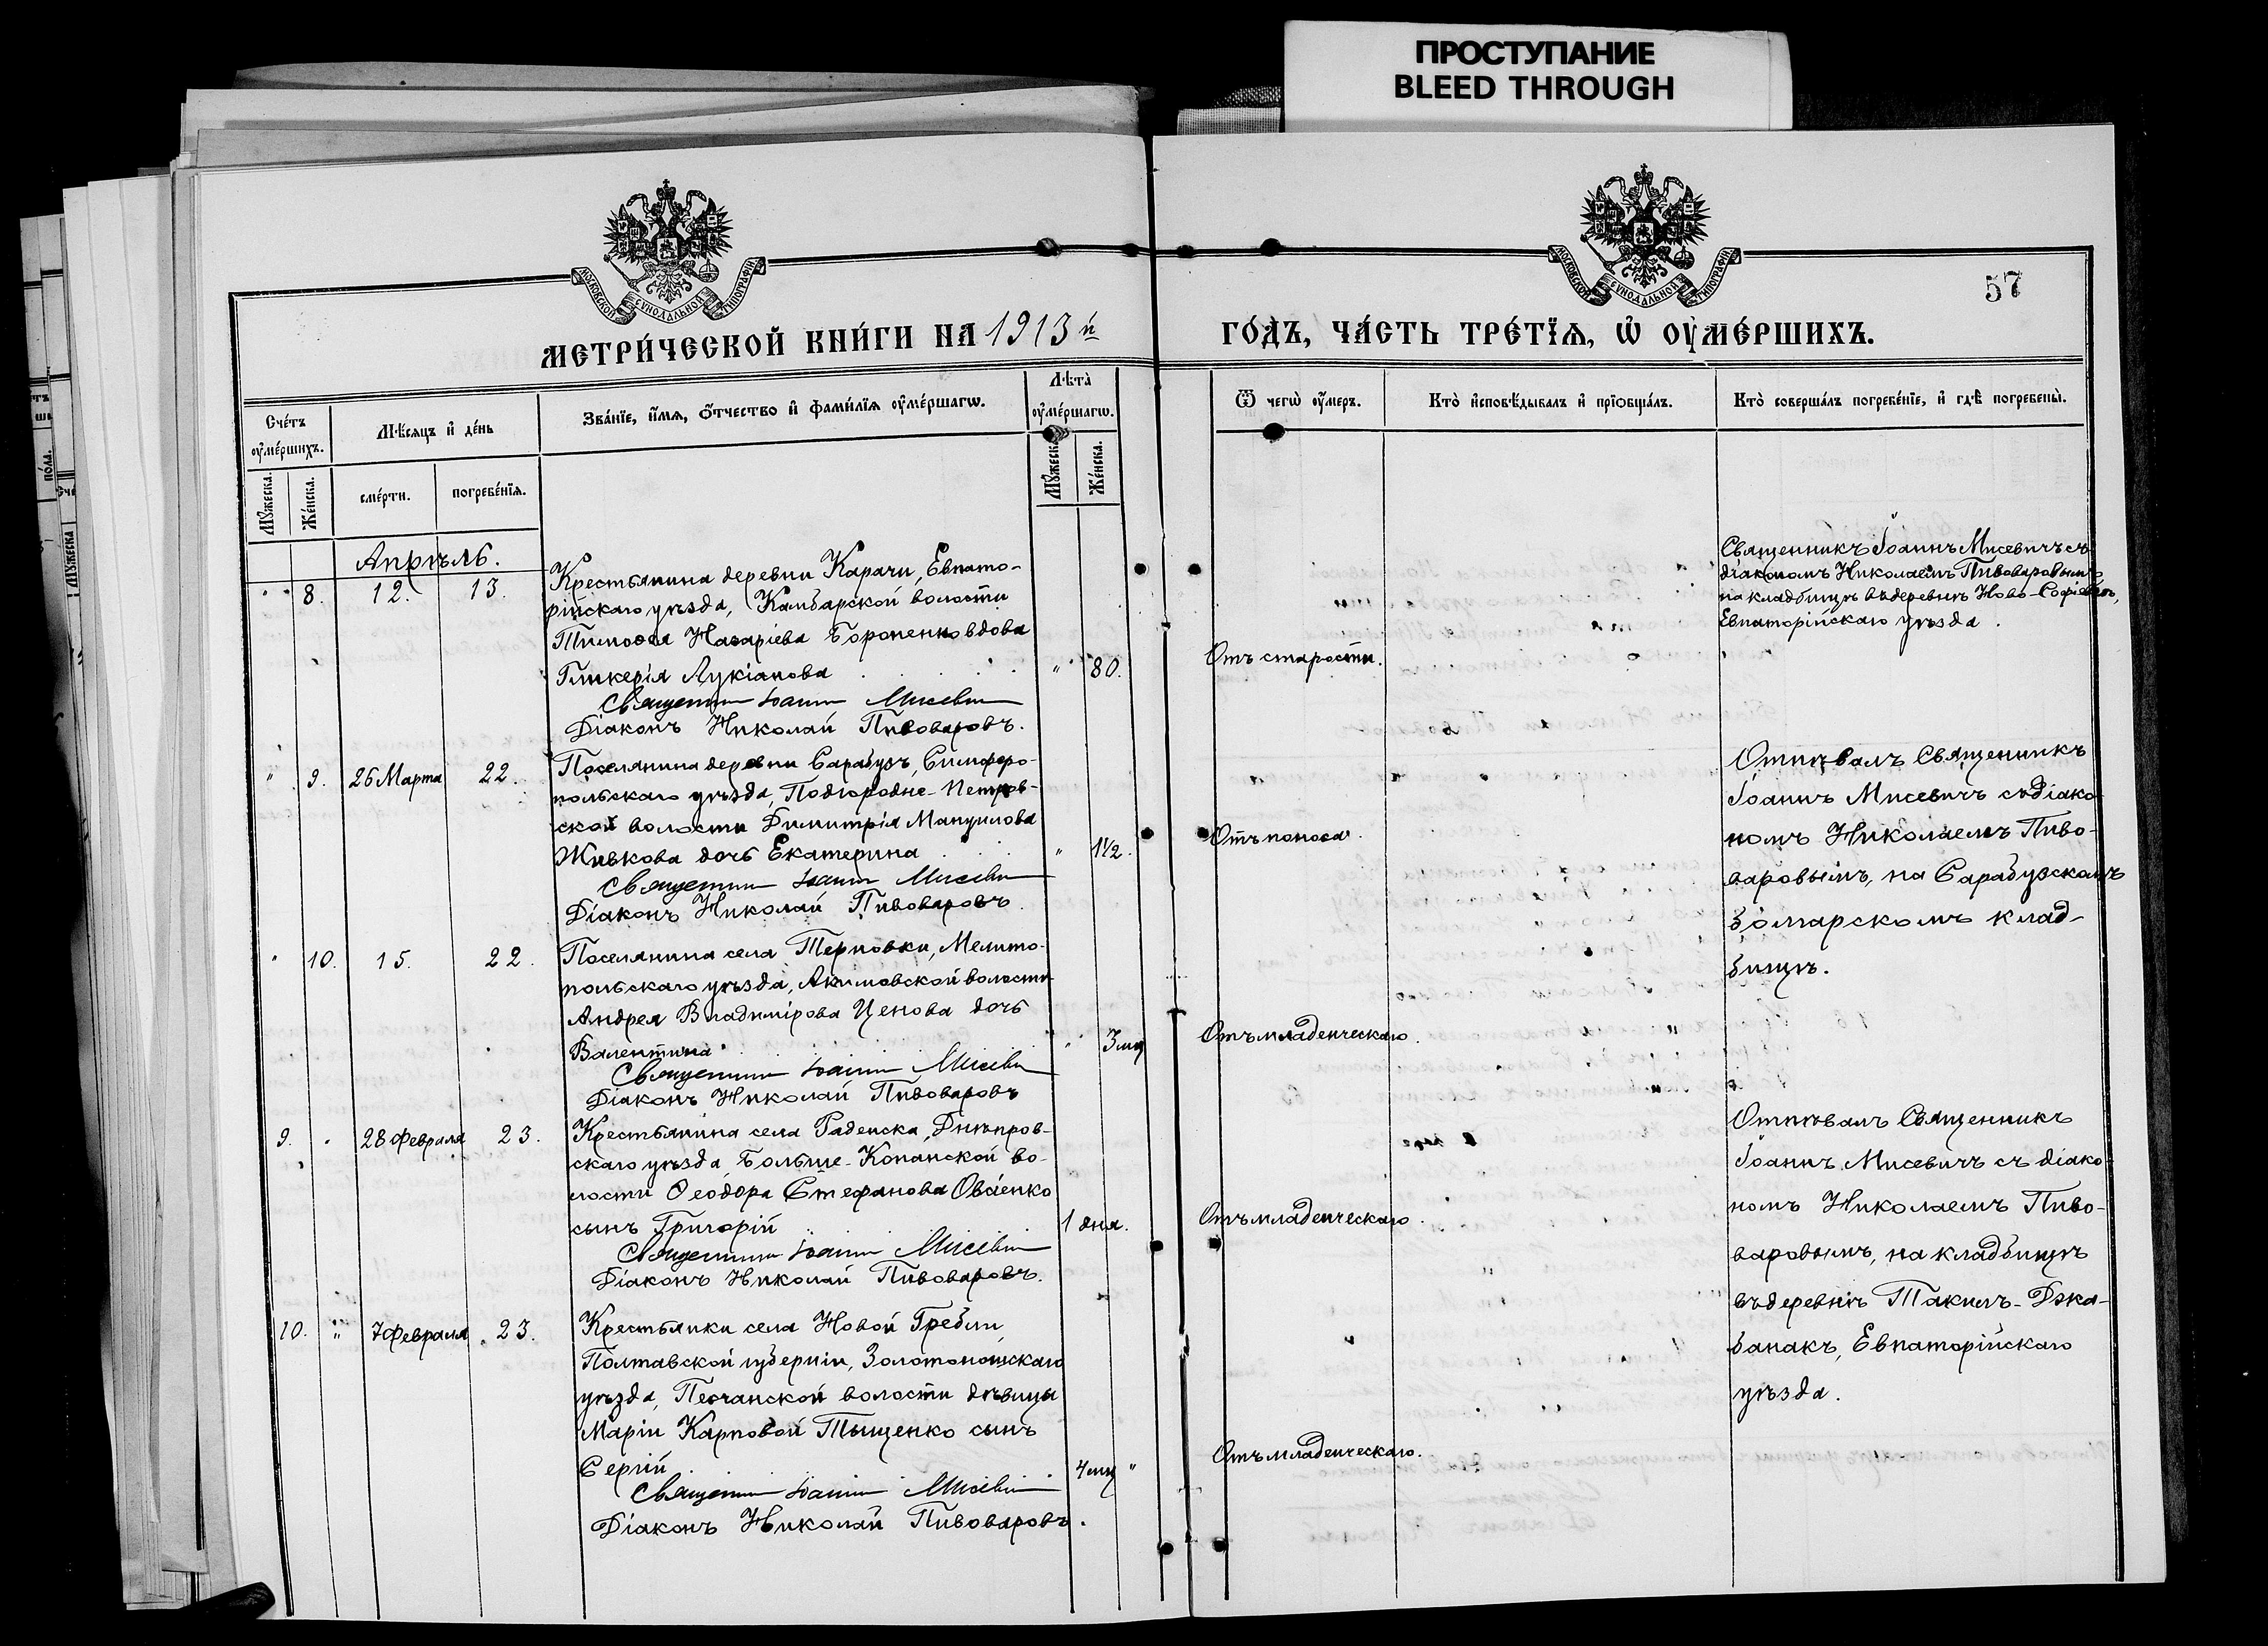 ПРОСТУПАНИЕ
BLEED THROUGH
МОСКОВСКОЙ СѴНОДАЛЬНОЙ ТИПОГРАФІИ
МОСКОВСКОЙ СѴНОДАЛЬНОЙ ТИПОГРАФІИ
57
МЕТРИ́ЧЕСКОЙ КНИ́ГИ НА 1913 й
ГО́ДЪ, ЧА́СТЬ ТРЕ́ТЇѦ, Ѡ҆ ОУ҆МЕ́РШИХЪ.
Сче́тъ оу҆ме́ршихъ.
Мѣ́сяцъ и҆ де́нь
Зва́нїе, и҆́мѧ, ѻ҆́тчество и҆ фами́лїѧ оу҆ме́ршагѡ.
Лѣ́та оу҆ме́ршагѡ.
Ѿ чегѡ̀ оу҆́меръ.
Кто̀ и҆сповѣ́дывалъ и҆ прїѻбща́лъ.
Кто̀ соверша́лъ погребе́нїе, и҆ гдѣ̀ погребены̀.
Мꙋ́жеска.
Же́нска.
сме́рти.
погребе́нїѧ.
Мꙋ́жеска.
Же́нска.
Апрѣль.
" 8. 12. 13.
Крестьянина деревни Карачи, Евпато-
рійскаго уѣзда, Камбарской волости
Тимоѳея Назаріева Бороненко вдова
Гликерія Лукіанова " 80.
Священникъ Іоаннъ Мисевичъ
Діаконъ Николай Пивоваровъ.
Отъ старости.
Священникъ Іоаннъ Мисевичъ съ
діакономъ Николаемъ Пивоваровымъ
на кладбищѣ въ деревнѣ Ново-Софіевкѣ,
Евпаторійскаго уѣзда.
" 9. 26 Марта 22.
Поселянина деревни Сарабузъ, Симферо-
польскаго уѣзда, Подгородне-Петров-
ской волости Димитрія Мануилова
Живкова дочь Екатерина " 1½.
Священникъ Іоаннъ Мисевичъ
Діаконъ Николай Пивоваровъ.
Отъ поноса.
Отпѣвалъ Священникъ
Іоаннъ Мисевичъ съ діако-
номъ Николаемъ Пиво-
варовымъ, на Сарабузскомъ
болгарскомъ клад-
бищѣ.
" 10. 15. 22.
Поселянина села Терновки, Мелито-
польскаго уѣзда, Акимовской волости
Андрея Владимірова Ценова дочь
Валентина " 3 мц
Священникъ Іоаннъ Мисевичъ
Діаконъ Николай Пивоваровъ
Отъ младенческаго.
9. " 28 Февраля 23.
Крестьянина села Раденска, Днѣпров-
скаго уѣзда Больше-Копанской во-
лости Ѳеодора Стефанова Овсіенко
сынъ Григорій 1 дня.
Священникъ Іоаннъ Мисевичъ
Діаконъ Николай Пивоваровъ.
Отъ младенческаго.
Отпѣвалъ Священникъ
Іоаннъ Мисевичъ съ діако-
номъ Николаемъ Пиво-
варовымъ, на кладбищѣ
въ деревнѣ Такилъ-Джа-
банакъ, Евпаторійскаго
уѣзда.
10. " 7 Февраля 23.
Крестьянки села Новой Гребли,
Полтавской губерніи, Золотоношскаго
уѣзда, Песчанской волости дѣвицы
Маріи Карповой Тыщенко сынъ
Сергій 4 мц "
Священникъ Іоаннъ Мисевичъ
Діаконъ Николай Пивоваровъ.
Отъ младенческаго.